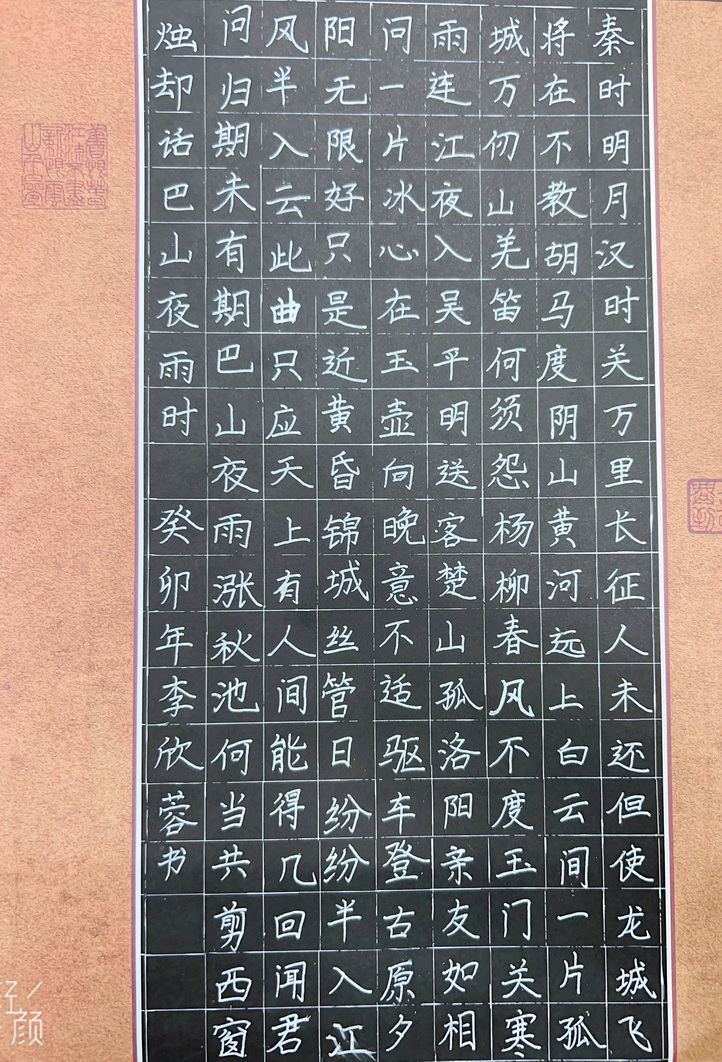 秦时明月汉时关万里长征人未还但使龙城飞
将在不教胡马度阴山黄河远上白云间一片孤
城万仞山羌笛何须怨杨柳春风不度玉门关寒
雨连江夜入吴平明送客楚山孤洛阳亲友如相
问一片冰心在玉壶向晚意不适驱车登古原夕
阳无限好只是近黄昏锦城丝管日纷纷半入江
风半入云此曲只应天上有人间能得几回闻君
问归期未有期巴山夜雨涨秋池何当共剪西窗
烛却话巴山夜雨时 癸卯年李欣蓉书
颜